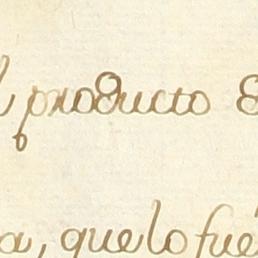 l producto
a, quelo fué